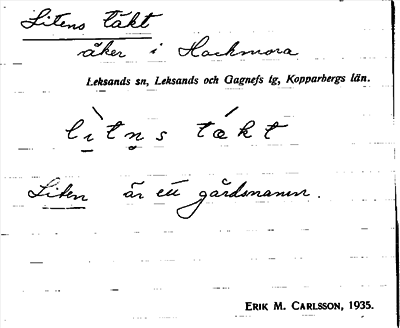 Litens täkt
åker i Hackmora
Leksands sn, Leksands och Gagnefs tg, Kopparbergs län.
lìtn̥s tǽkt
Liten är ett gårdsnamn.
ERIK M. CARLSSON, 1935.